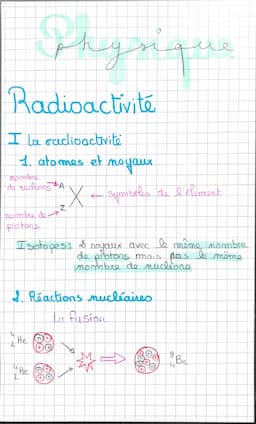 physique
Radioactivité
I La radioactivité
1. atomes et noyaux
nombre
de nucléons → A
X ← symboles de l'élément
nombre de → Z
protons
Isotopes : noyaux avec le même nombre
de protons mais pas le même
nombre de nucléons
2. Réactions nucléaires
La fusion
4 2 He
8 4 Be
4 2 He